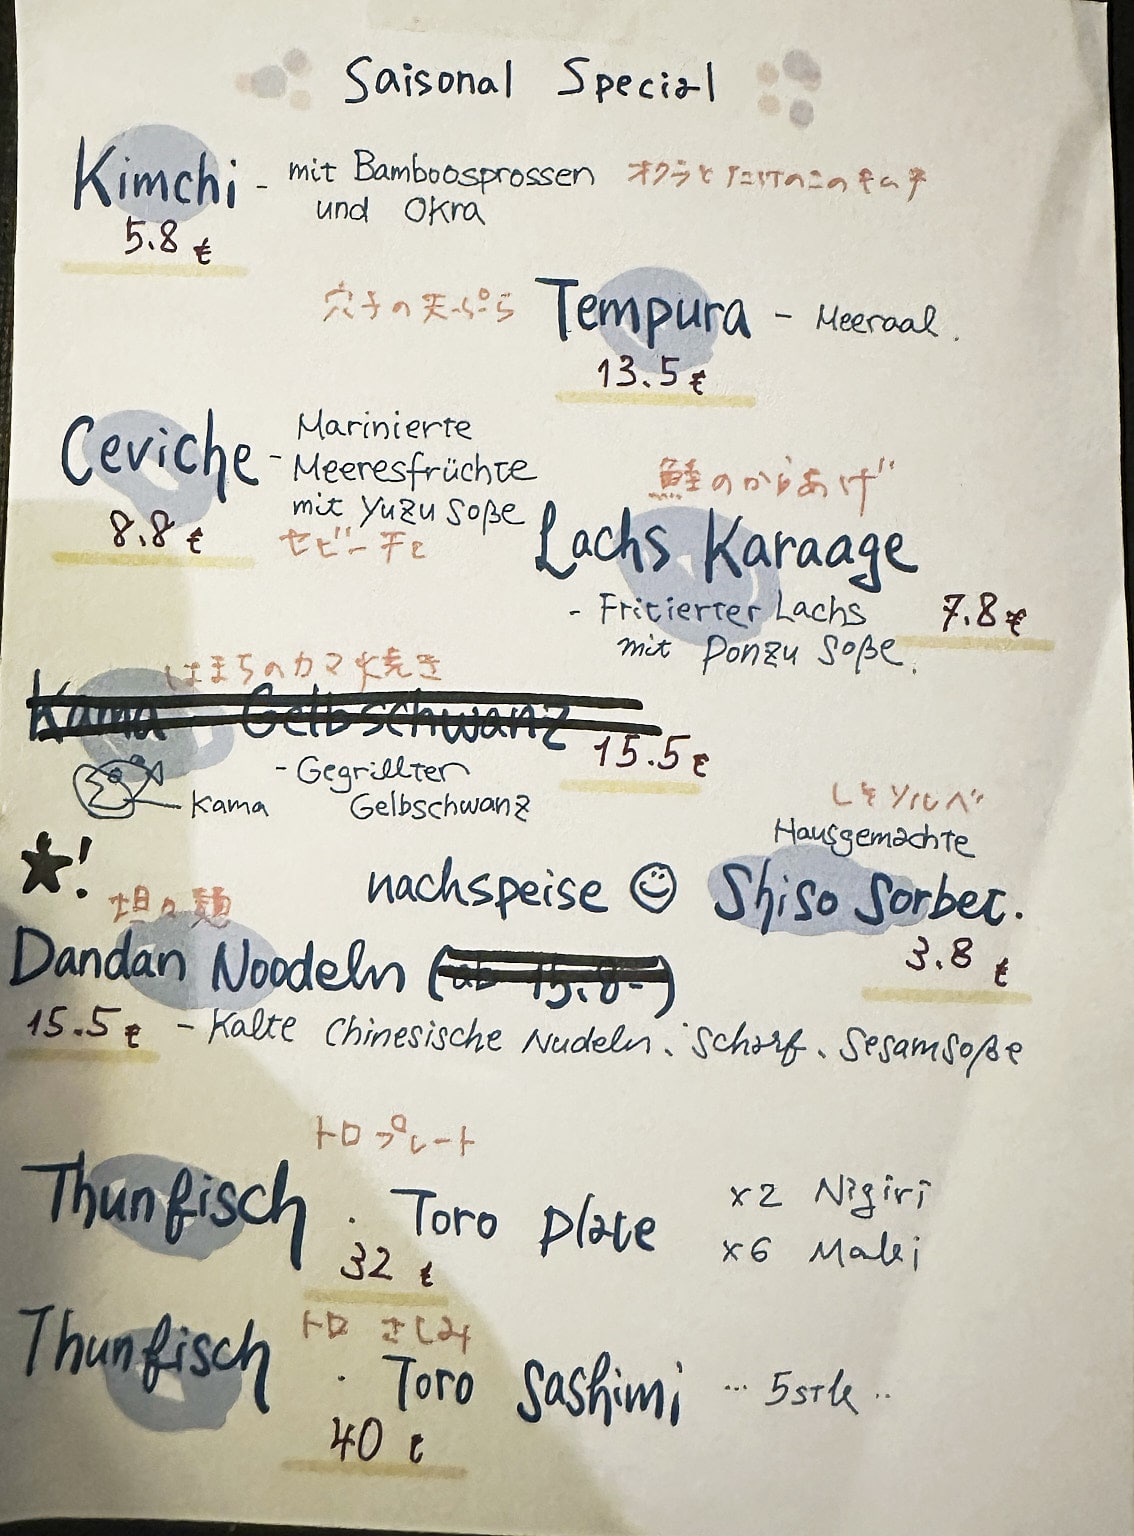 Saisonal Special
Kimchi - mit Bamboosprossen
und Okra
オクラとたけのこのキムチ
5.8 €
穴子の天ぷら
Tempura - Meeraal.
13.5 €
Ceviche - Marinierte
Meeresfrüchte
mit Yuzu Soße
8.8 €
セビーチェ
鮭のからあげ
Lachs Karaage
- Fritierter Lachs
mit Ponzu Soße.
7.8 €
はまちのカマ焼き
Kama - Gelbschwanz
15.5 €
- Gegrillten
Gelbschwanz
Kama
しそソルベ
Hausgemachte
nachspeise ☺ Shiso Sorbet.
3.8 €
★!
坦々麺
Dandan Noodeln (ab 15.8-)
15.5 € - Kalte Chinesische Nudeln. Scharf. Sesamsoße
トロプレート
Thunfisch . Toro plate
x2 Nigiri
x6 Maki
32 €
トロ さしみ
Thunfisch . Toro Sashimi ... 5stk ..
40 €